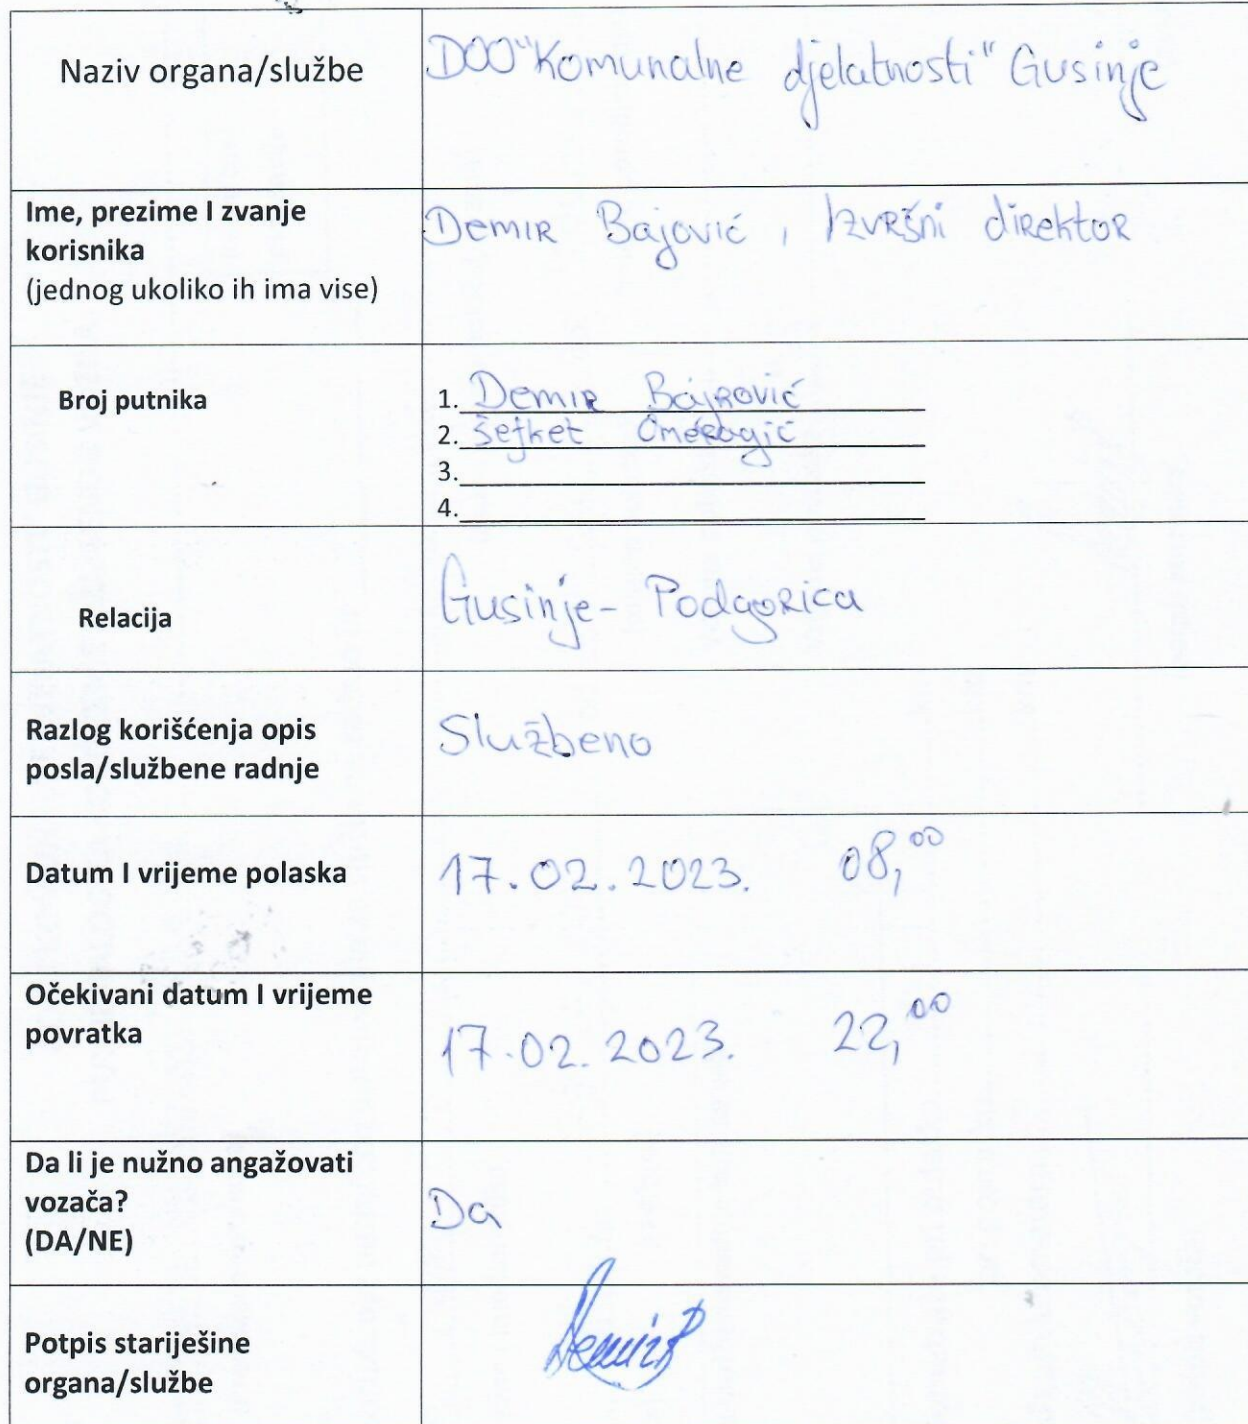 Naziv organa/službe
DOO "Komunalne djelatnosti" Gusinje
Ime, prezime I zvanje
korisnika
(jednog ukoliko ih ima vise)
Demir Bajović, Izvršni direktor
Broj putnika
1. Demir Bajrović
2. Šefket Omeragić
3.
4.
Relacija
Gusinje - Podgorica
Razlog korišćenja opis
posla/službene radnje
Službeno
Datum I vrijeme polaska
17.02.2023. 08,00
Očekivani datum I vrijeme
povratka
17.02.2023. 22,00
Da li je nužno angažovati
vozača?
(DA/NE)
Da
Potpis starješine
organa/službe
Demir B